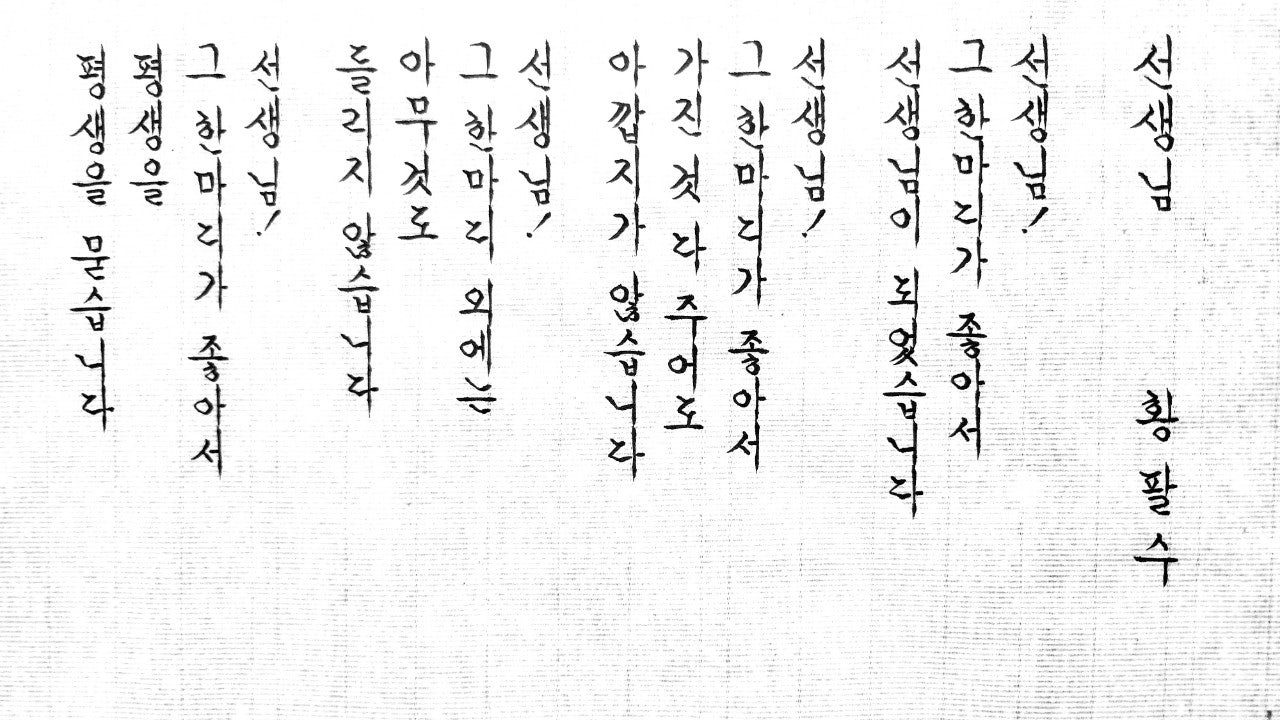 선생님 황팔수
선생님!
그 한마디가 좋아서
선생님이 되었습니다
선생님!
그 한마디가 좋아서
가진 것 다 주어도
아깝지가 않습니다
선생님!
그 한마디 외에는
아무것도
들리지 않습니다
선생님!
그 한마디가 좋아서
평생을
평생을 묻습니다